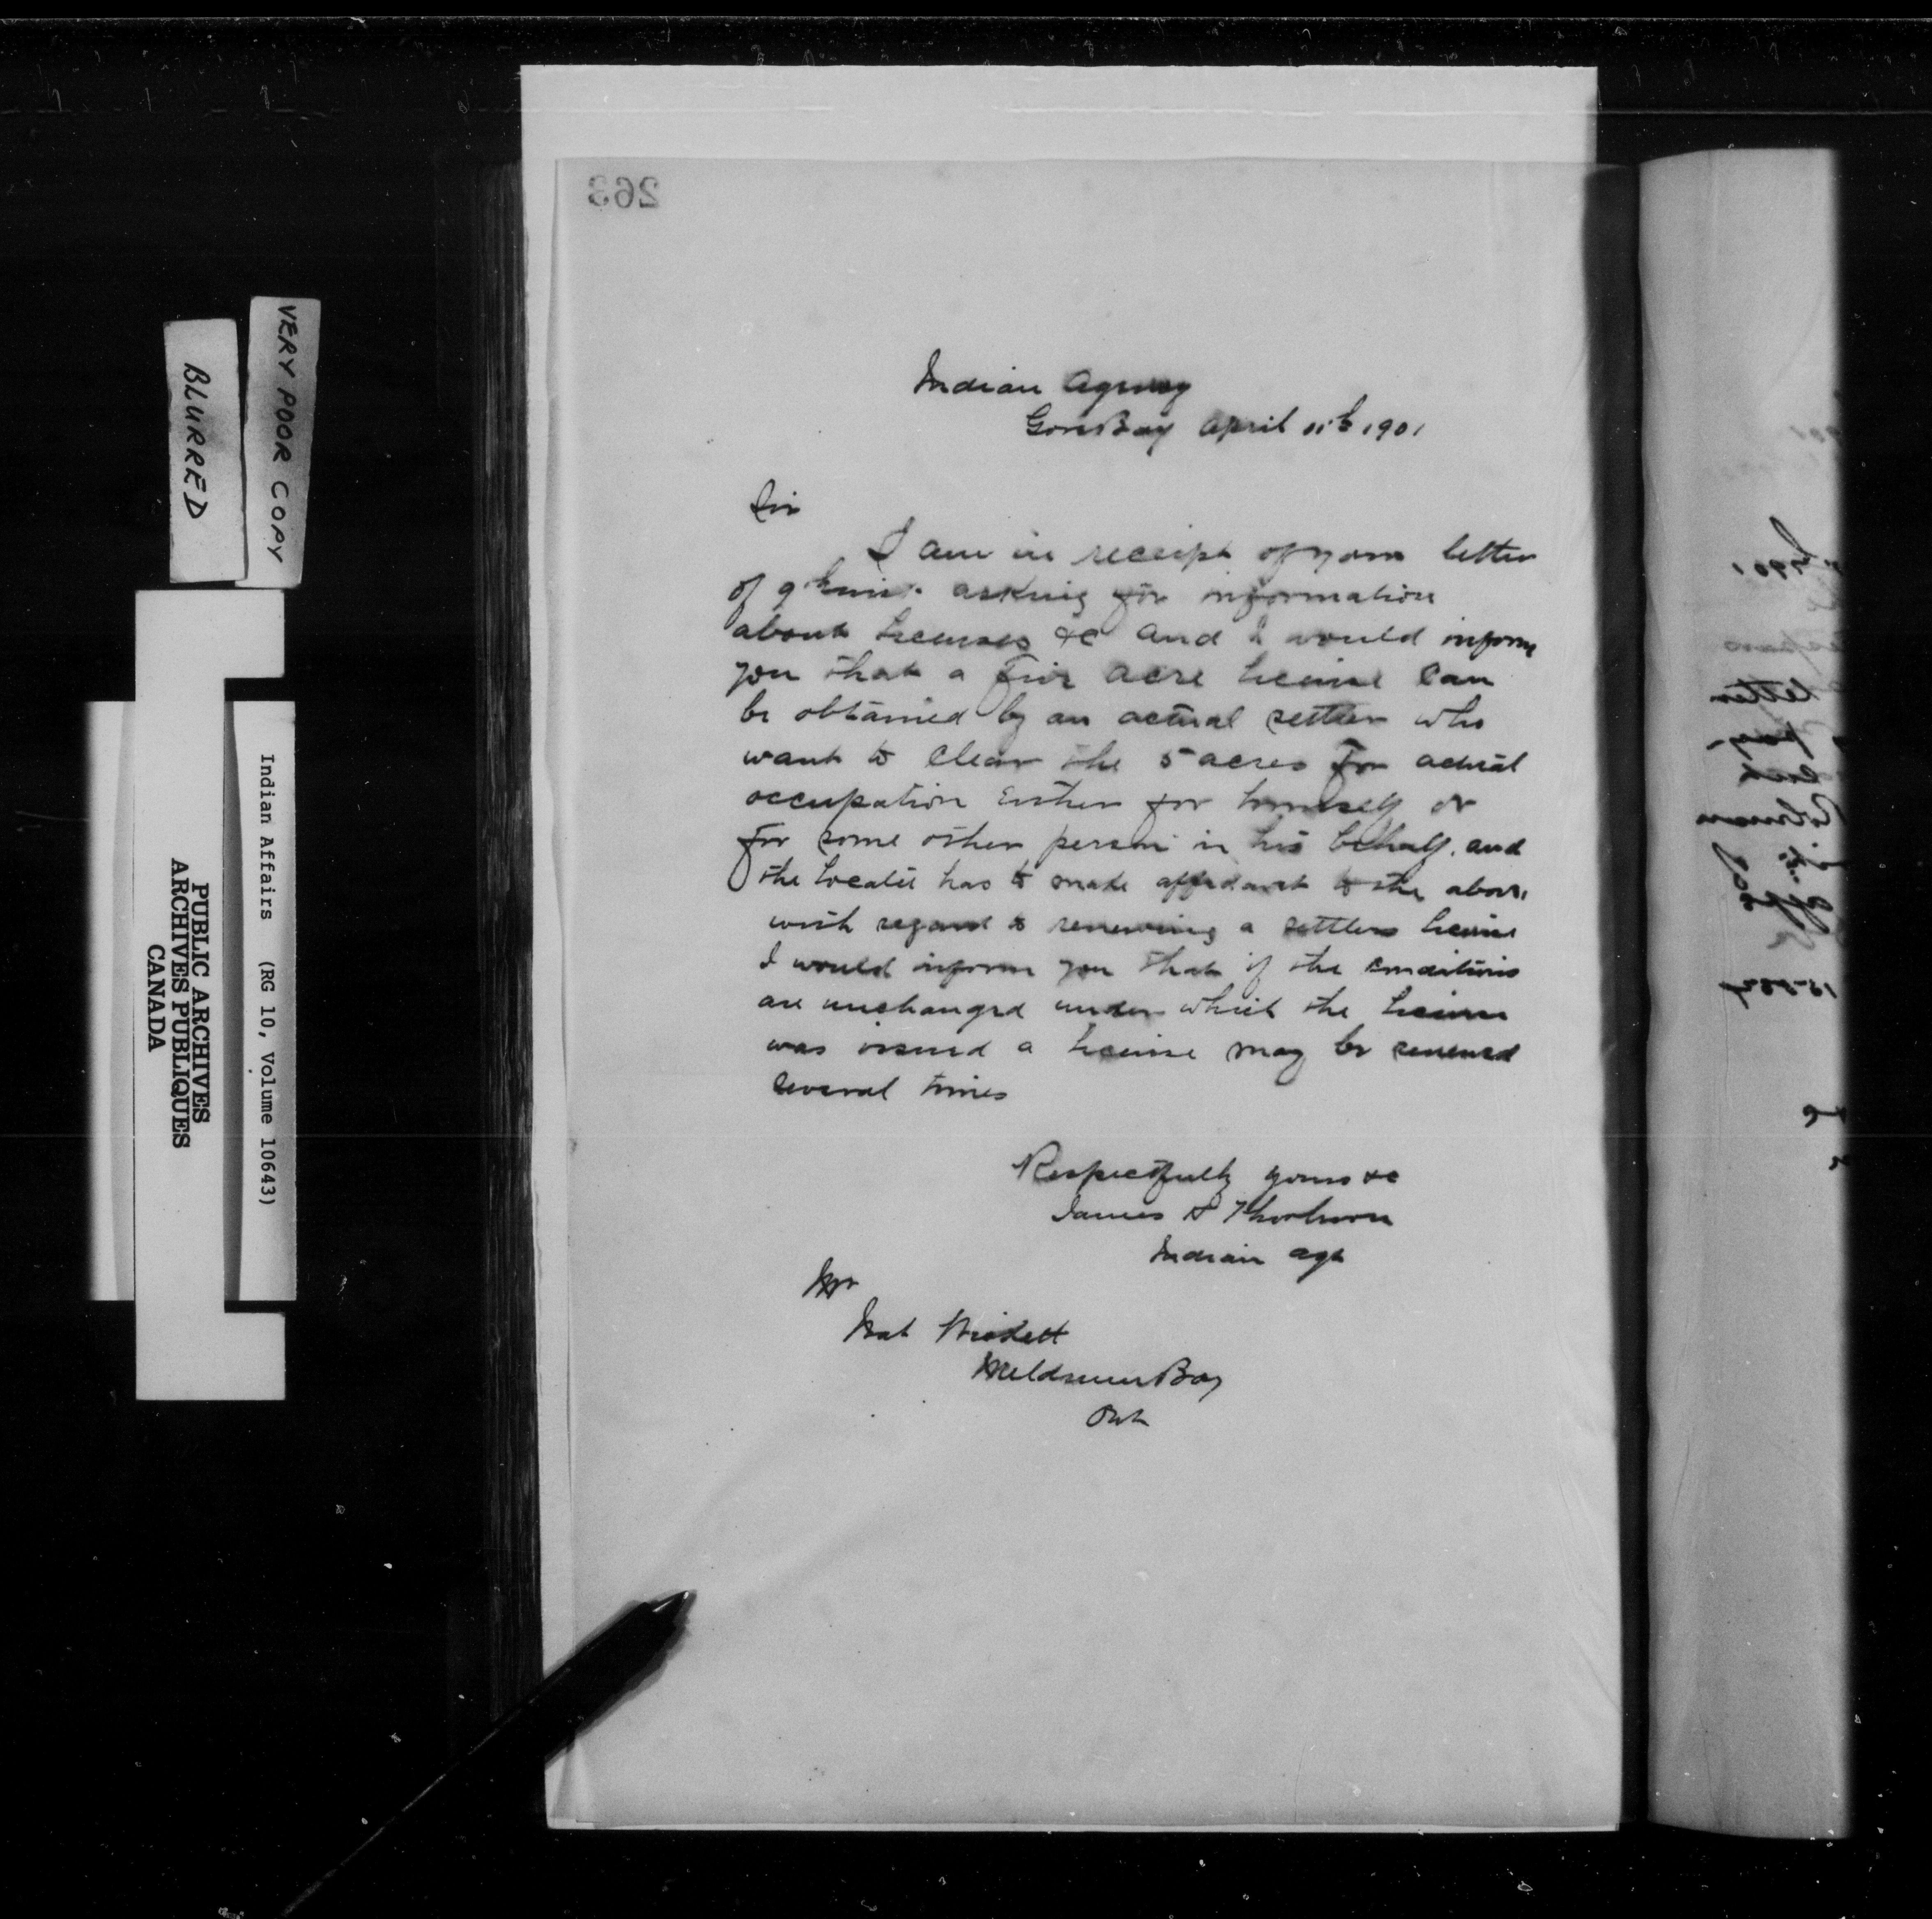 263
Indian Agency
Gore Bay April 11th 1901
Sir
I am in receipt of your letter
of 9th inst. asking for information
about licenses &c and I would inform
you that a Five acre license can
be obtained by an actual settler who
want to clear the 5 acres for actual
occupation Either for himself or
for some other person in his behalf. and
the Locatee has to make affidavit to the above
with regard to renewing a settlers license
I would inform you that if the conditions
are unchanged under which the license
was issued a license may be renewed
several times
Respectfully yours &c
James H Thorburn
Indian agt
Mr
Nat
Meldrum Bay
Ont
VERY POOR COPY
BLURRED
Indian Affairs (RG 10, Volume 10643)
PUBLIC ARCHIVES
ARCHIVES PUBLIQUES
CANADA
letter